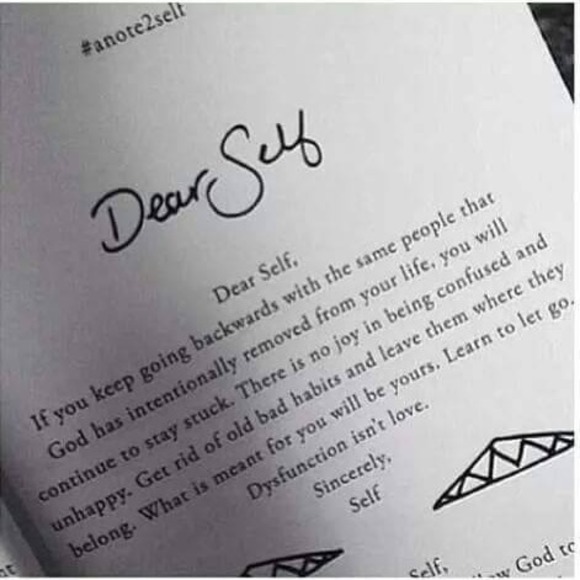 #anote2self
Dear Self
Dear Self,
If you keep going backwards with the same people that
God has intentionally removed from your life, you will
continue to stay stuck. There is no joy in being confused and
unhappy. Get rid of old bad habits and leave them where they
belong. What is meant for you will be yours. Learn to let go.
Dysfunction isn't love.
Sincerely,
Self
Self,
God to